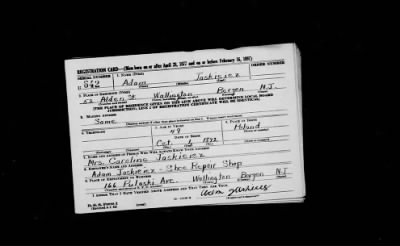 REGISTRATION CARD—(Men born on or after April 28, 1877 and on or before February 16, 1897)
SERIAL NUMBER 1. NAME (Print) ORDER NUMBER (Print)
U 542 Adam Jaskierez
2. PLACE OF RESIDENCE (Print)
52 Alden St. Wallington Bergen N.J.
[THE PLACE OF RESIDENCE GIVEN ON THE LINE ABOVE WILL DETERMINE LOCAL BOARD
JURISDICTION; LINE 2 OF REGISTRATION CERTIFICATE WILL BE IDENTICAL]
3. MAILING ADDRESS
Same
4. TELEPHONE 5. AGE IN YEARS 6. PLACE OF BIRTH
49 Poland
DATE OF BIRTH
Oct. 1892
7. NAME AND ADDRESS OF PERSON WHO WILL ALWAYS KNOW YOUR ADDRESS
Mrs. Caroline Jaskierez
8. EMPLOYER'S NAME AND ADDRESS
Adam Jaskierez - Shoe Repair Shop
9. PLACE OF EMPLOYMENT OR BUSINESS
166 Pulaski Ave. Wallington Bergen N.J.
I AFFIRM THAT I HAVE VERIFIED ABOVE ANSWERS AND THAT THEY ARE TRUE.
D. S. S. Form 1